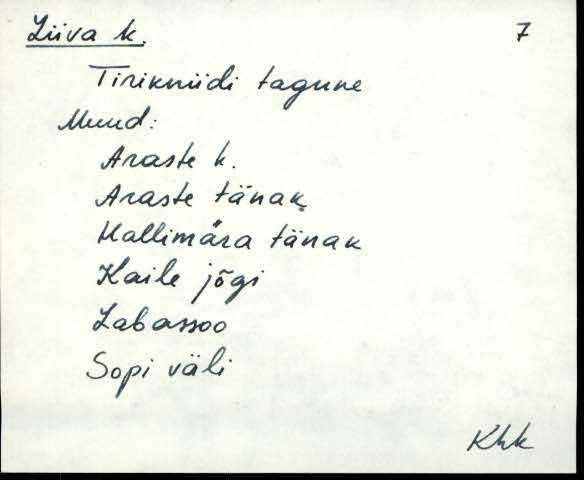 Liiva k. 7
Tirikniidi tagune
Muud:
Araste k.
Araste tänak
Hallimära tänak
Kaile jõgi
Labassoo
Sopi väli
Khk